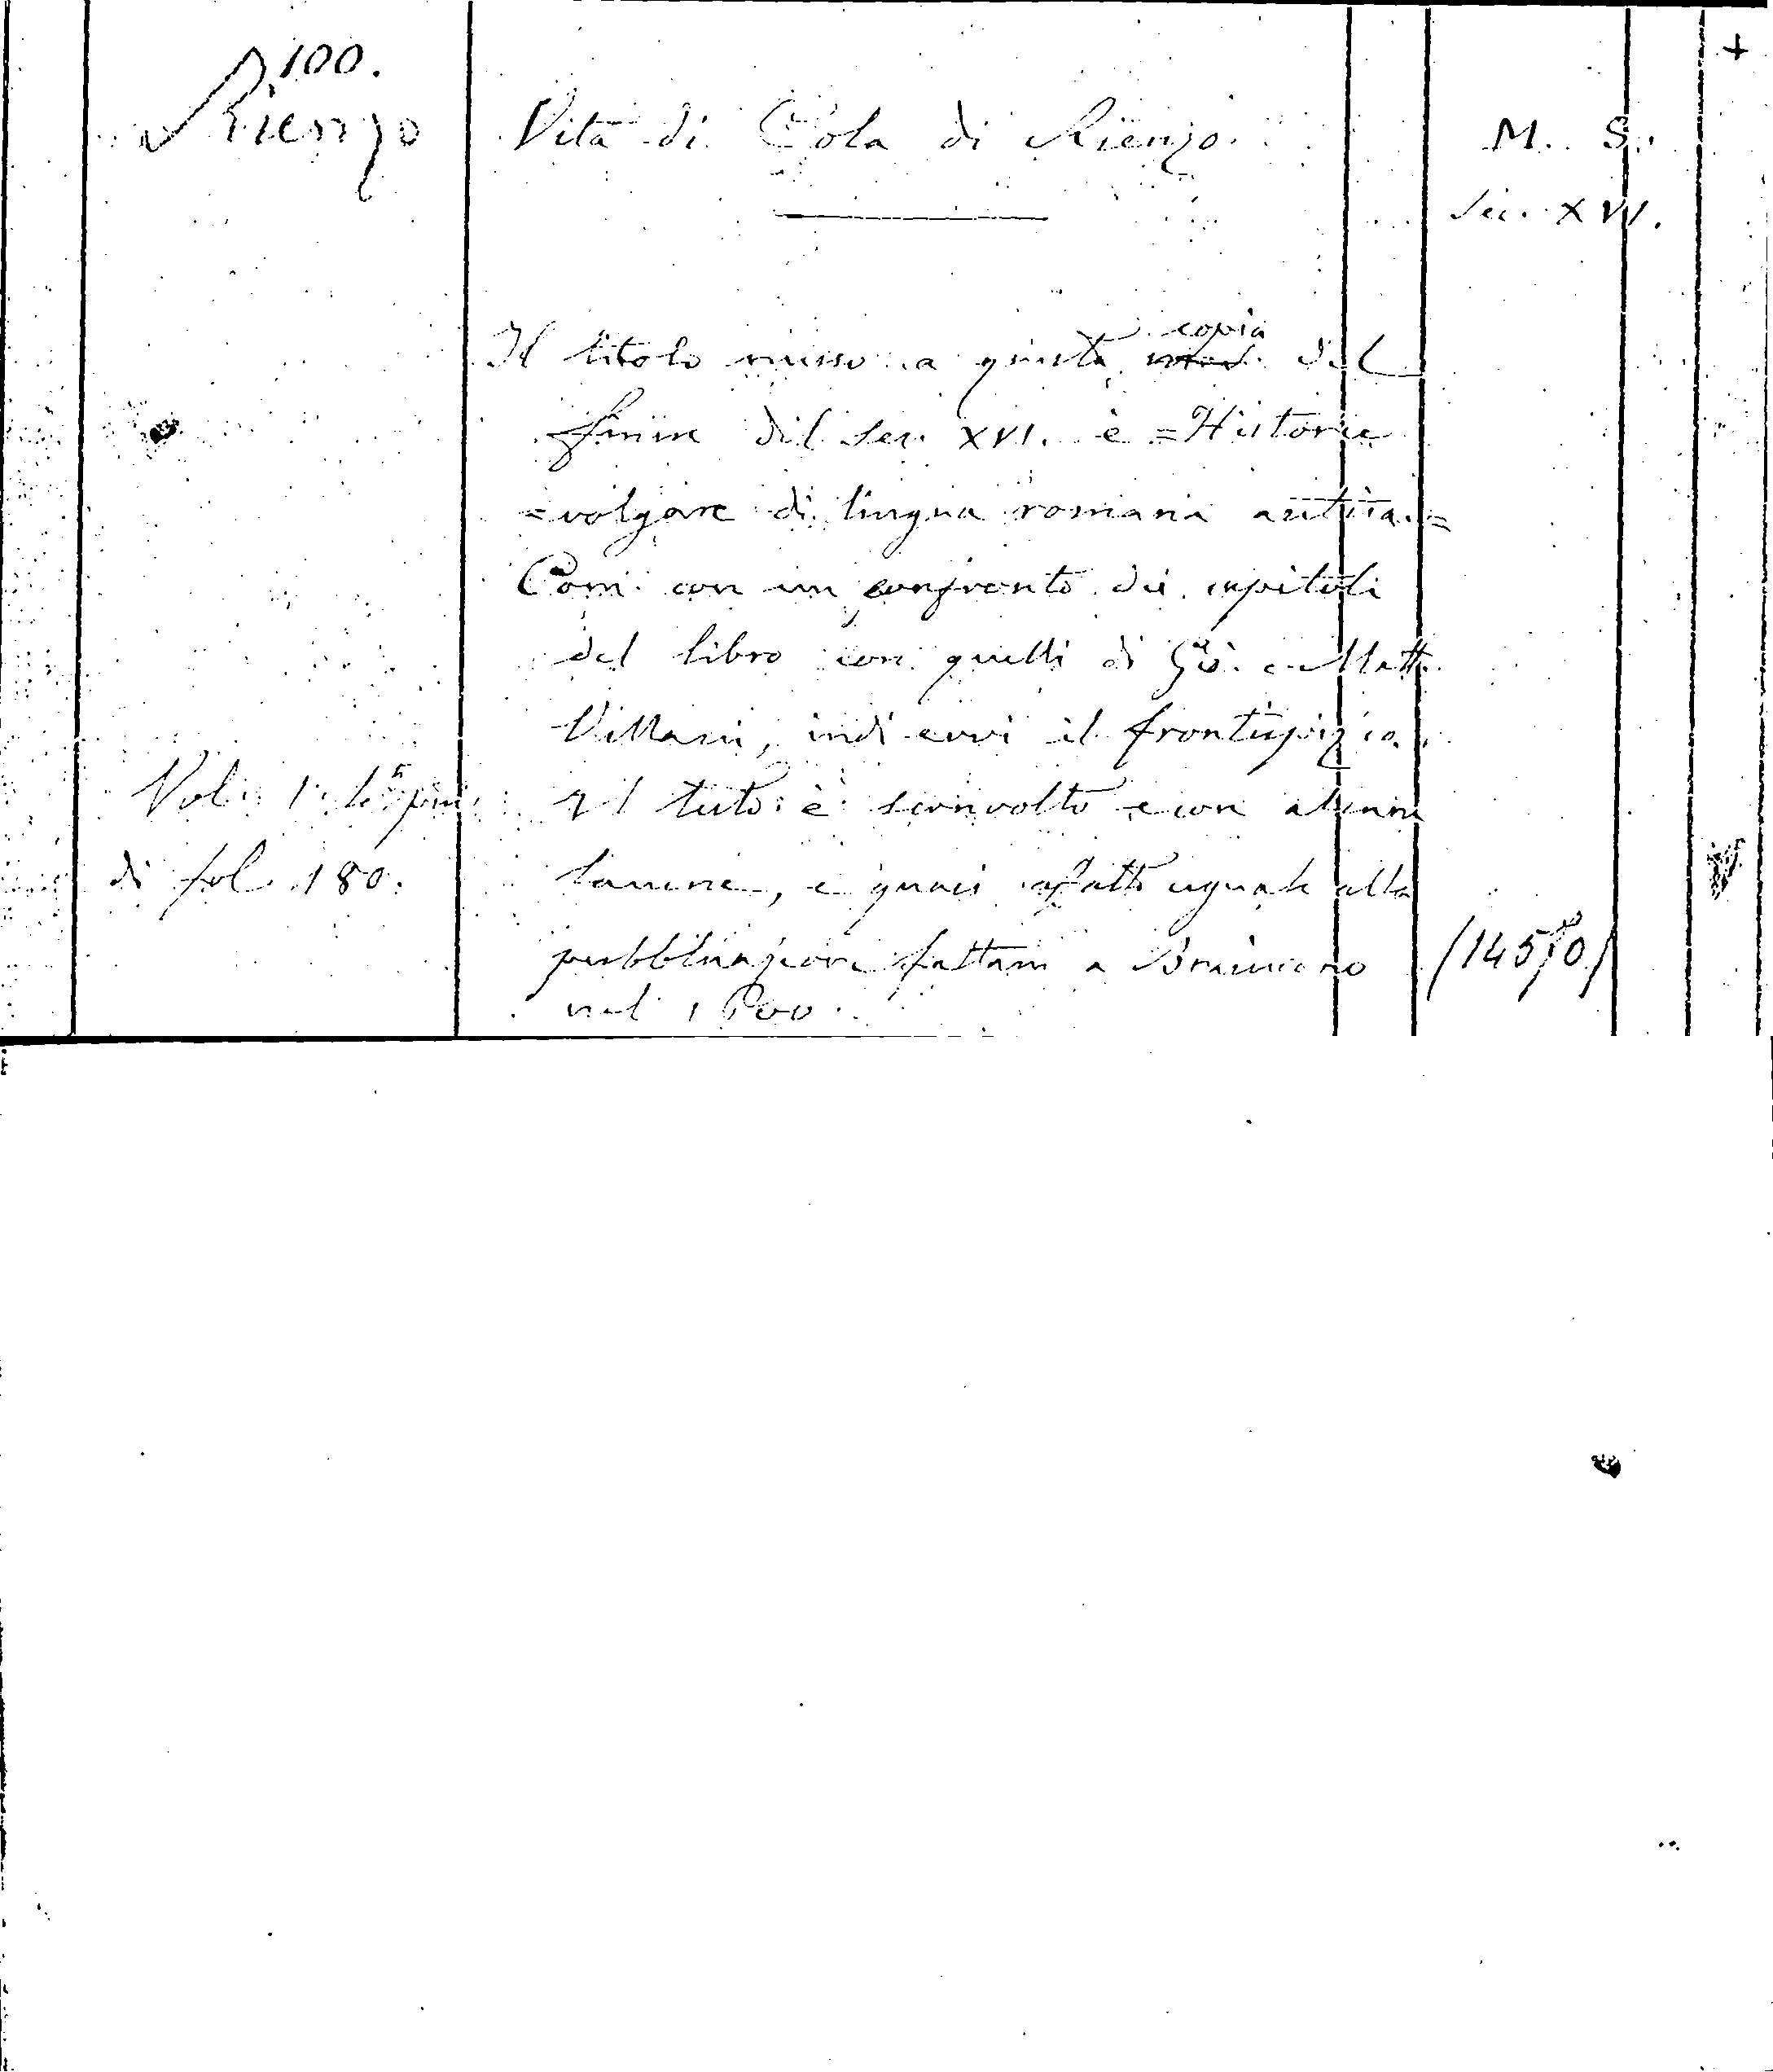 100.
Rienzo
Vita di Cola di Rienzo.
M. S.
Sec. XVI.
Il titolo messo a questa copia del
finire del Sec. XVI. è = Historie
= volgare di lingua romana antica. =
Com. con un confronto dei capitoli
del libro con quelli di Gio. e Matt.
Villani, indi evvi il frontispizio.
Il tuto è sconvolto e con alcune
lacune, e quasi affatto uguale alla
pubblicazione fattasi a Bracciano
nel
Vol. 1
di fol. 180.